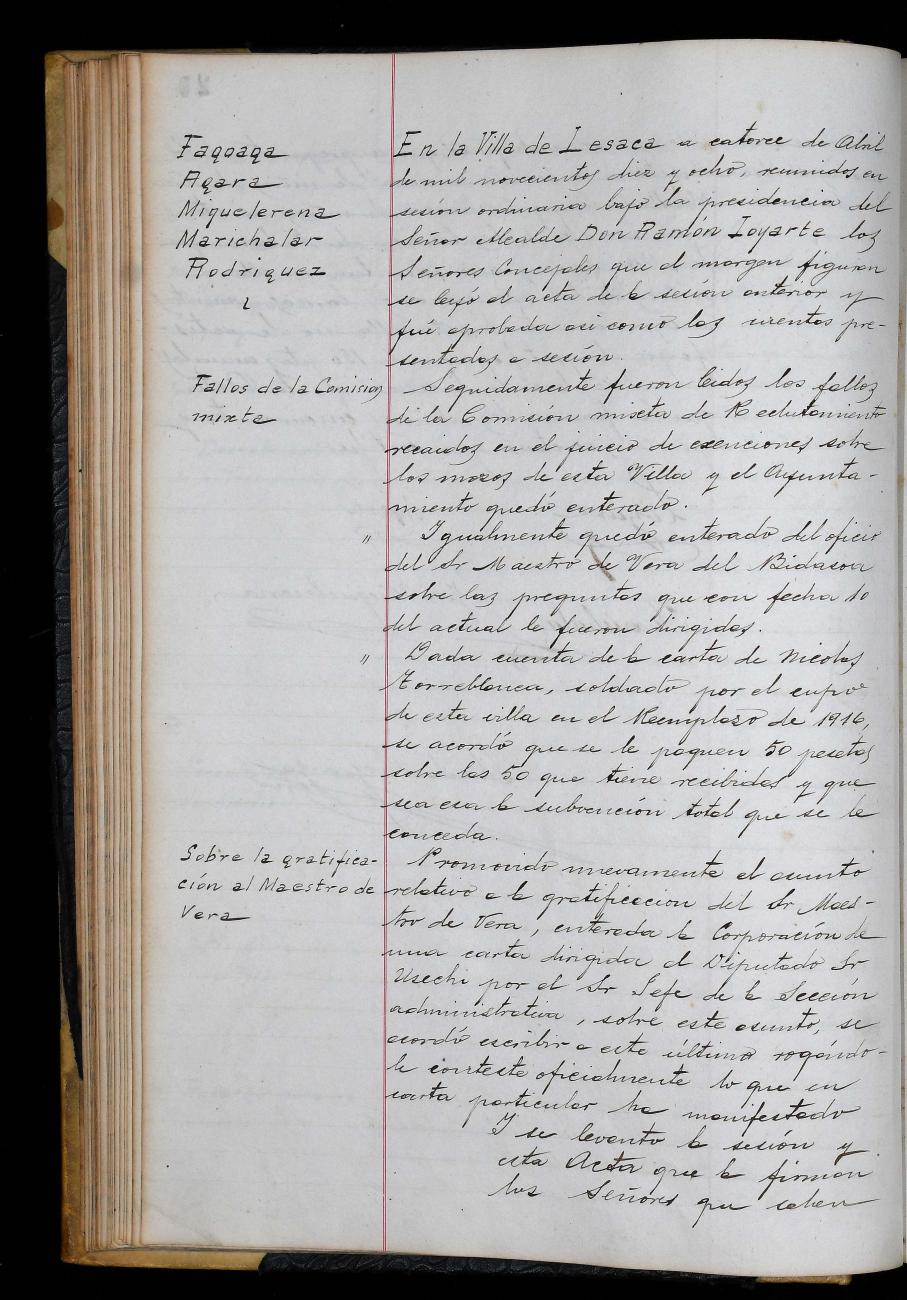 Fagoaga
Agara
Miguelerena
Marichalar
Rodriguez
En la Villa de Lesaca a catorce de Abril
de mil novecientos diez y ocho, reunidos en
sesión ordinaria bajo la presidencia del
Señor Alcalde Don Ramón Ioyarte los
Señores Concejales que al margen figuran
se leyó el acta de la sesión anterior y
fué aprobada asi como las cuentas pre-
sentadas a sesión.
Fallos de la Comision
mixta
Seguidamente fueron leidos los fallos
de la Comisión mixta de Reclutamiento
recaidos en el juicio de exenciones sobre
los mozos de esta Villa y el Ayunta-
miento quedó enterado.
" Igualmente quedó enterado del oficio
del Sr Maestro de Vera del Bidasoa
sobre las preguntas que con fecha 10
del actual le fueron dirigidas.
" Dada cuenta de la carta de Nicolas
Torreblanca, soldado por el cupo
de esta villa en el Reemplazo de 1916,
se acordó que se le paguen 50 pesetas
sobre las 50 que tiene recibidas y que
sea esa la subvención total que se le
conceda.
Sobre la gratifica-
ción al Maestro de
Vera
Promovido nuevamente el asunto
relativo a la gratificacion del Sr Maes-
tro de Vera, enterada la Corporación de
una carta dirigida al Diputado Sr
Usechi por el Sr Jefe de la Sección
administrativa, sobre este asunto, se
acordó escribir a este último rogándo-
le conteste oficialmente lo que en
carta particular ha manifestado
Y se levanto la sesión y
esta Acta que la firman
los Señores que saben